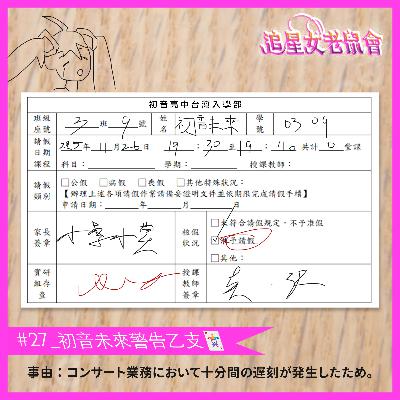 追星女老鼠會
初音高中台湾入學部
班級座號 3 班 9 號 姓名 初音未來 學號 0309
請假日期 年 11 月 26 日 19:30 至 19:40 共計 0 堂課
課程 科目： 學期： 授課教師：
請假類別 □公假 □病假 □喪假 □其他特殊狀況：
【辦理上述各項請假作業請備妥證明文件並依期限完成請假手續】
申請日期： 年 月 日
家長簽章 核假狀況 □未符合請假規定，不予准假
□准予請假
□其他：
實研組存查 授課教師簽章
#27_初音未來警告乙支
事由：コンサート業務において十分間の遅刻が発生したため。